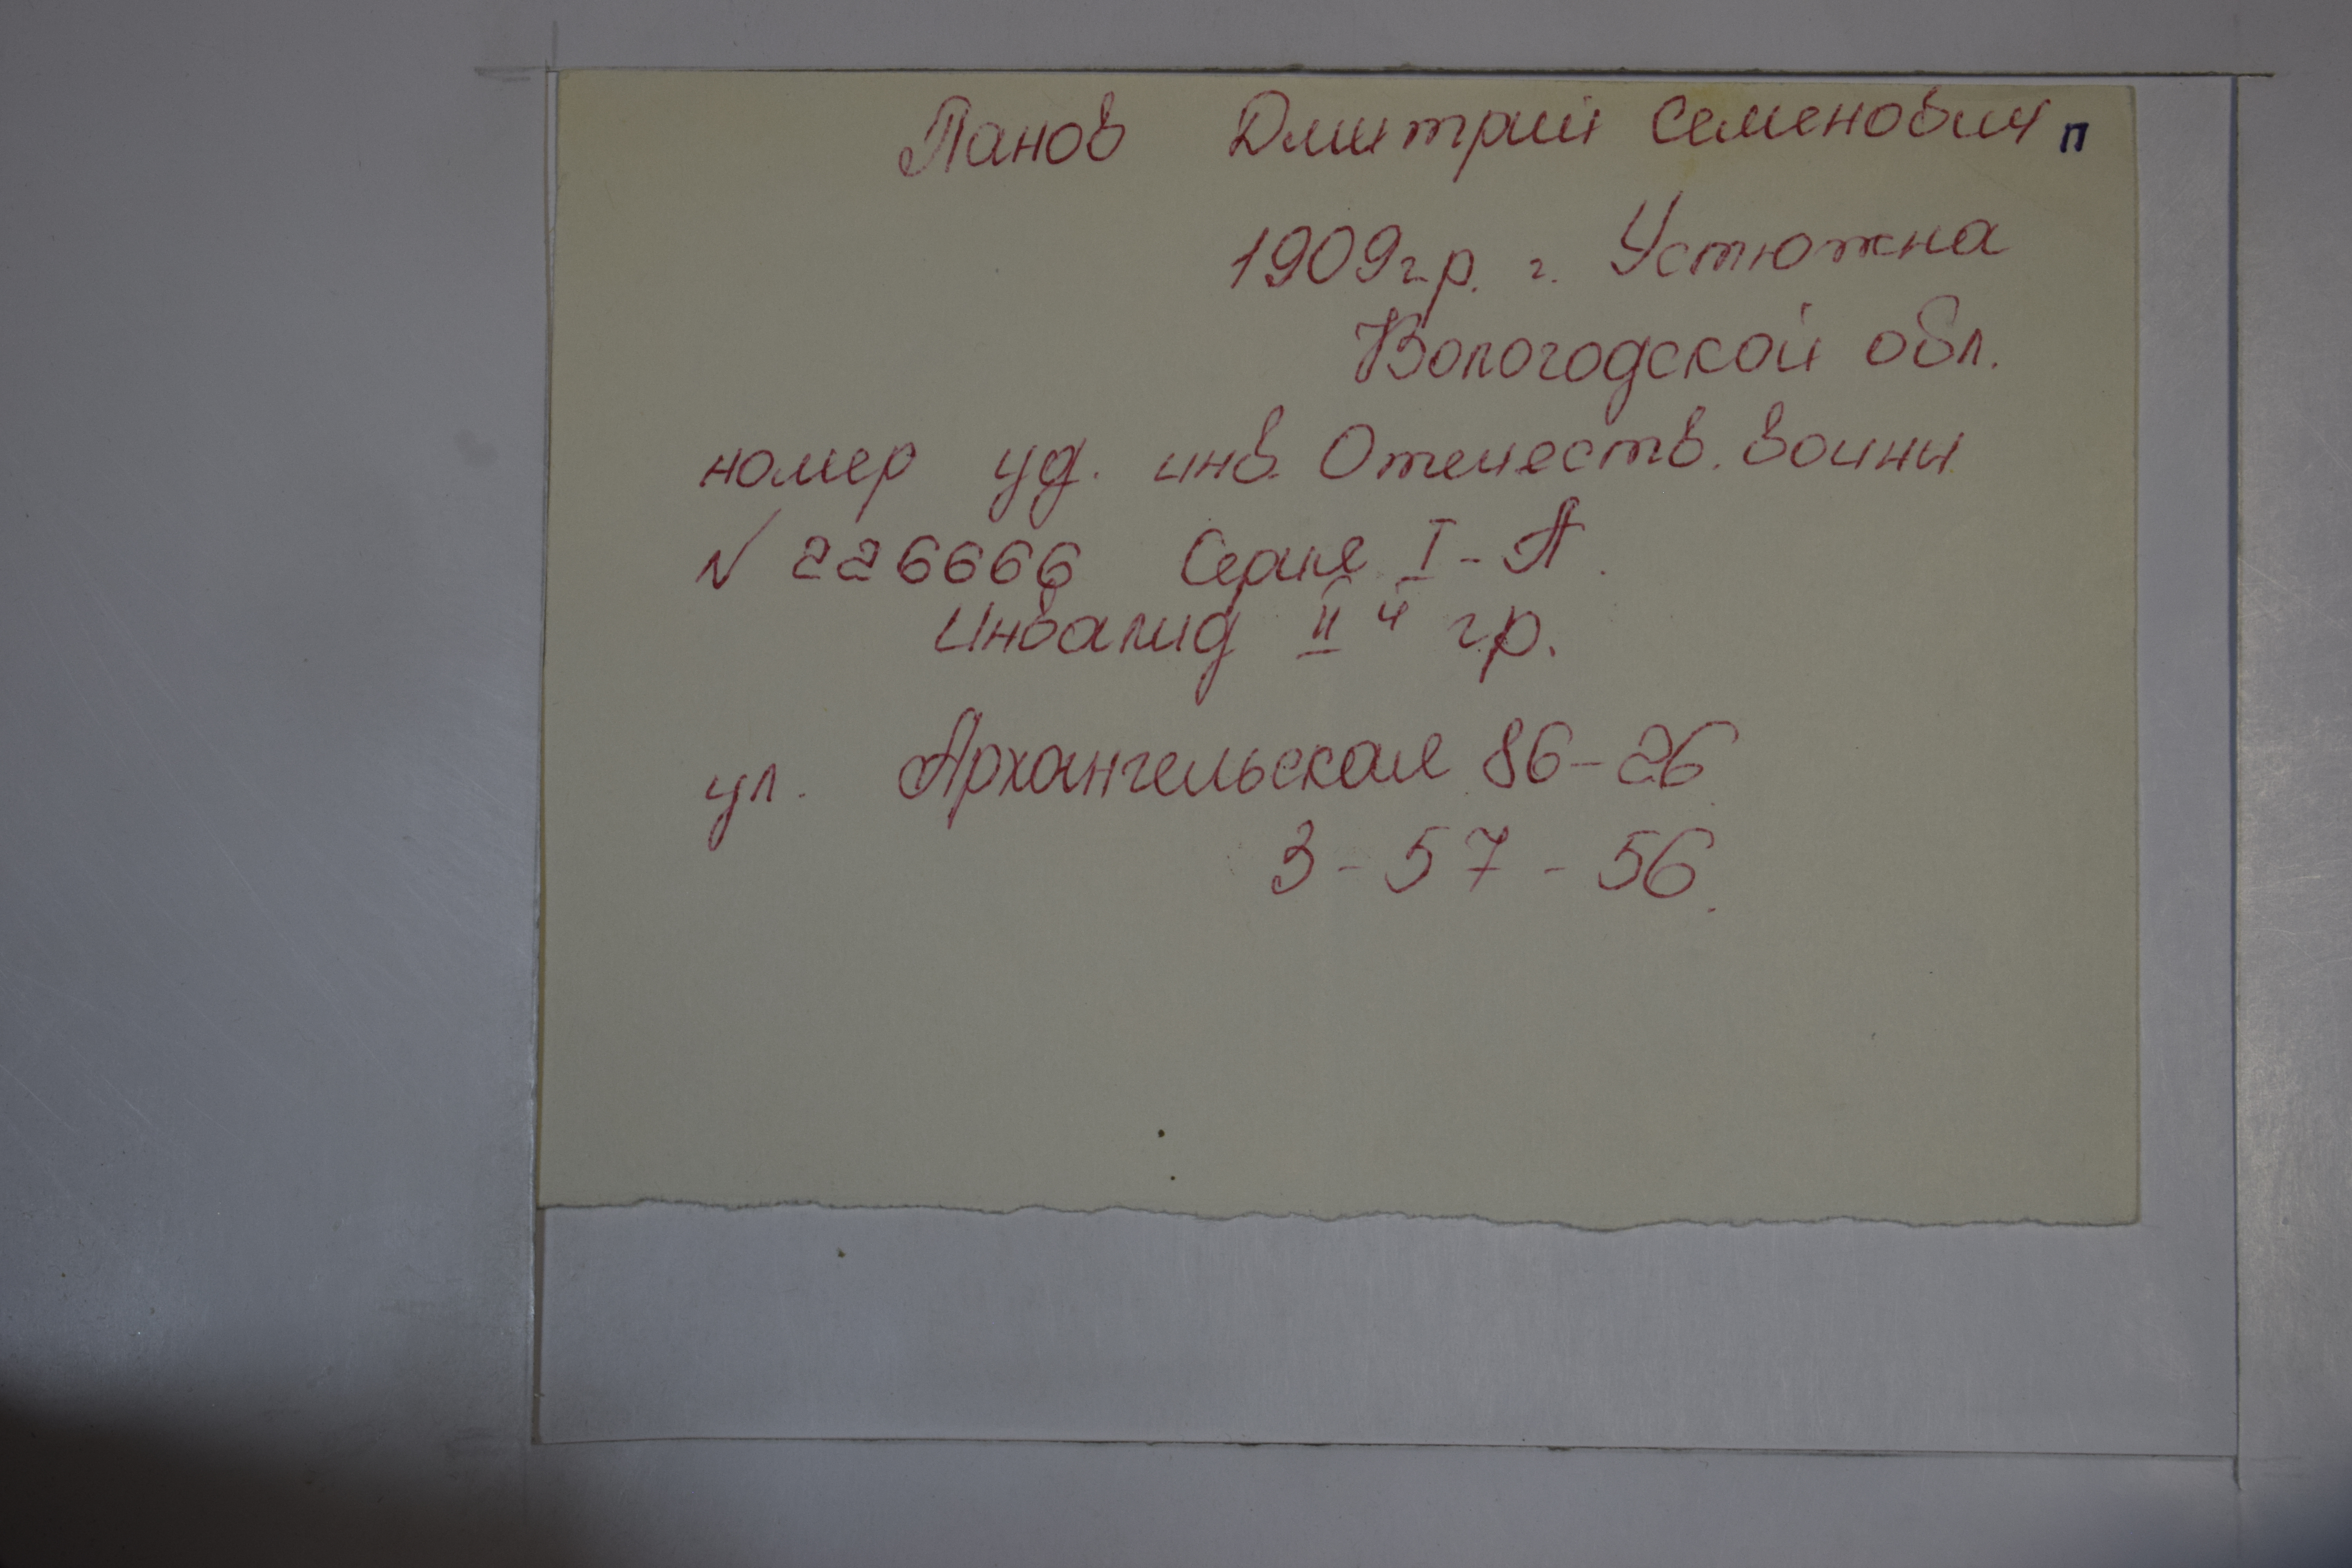 Панов Дмитрий Семенович п
1909г.р. г. Устюжна
Вологодской обл.
номер уд. инв. Отечеств. воины
№ 226666 Серия I-А.
Инвалид II й гр.
ул. Архангельская 86-26
3-57-56.